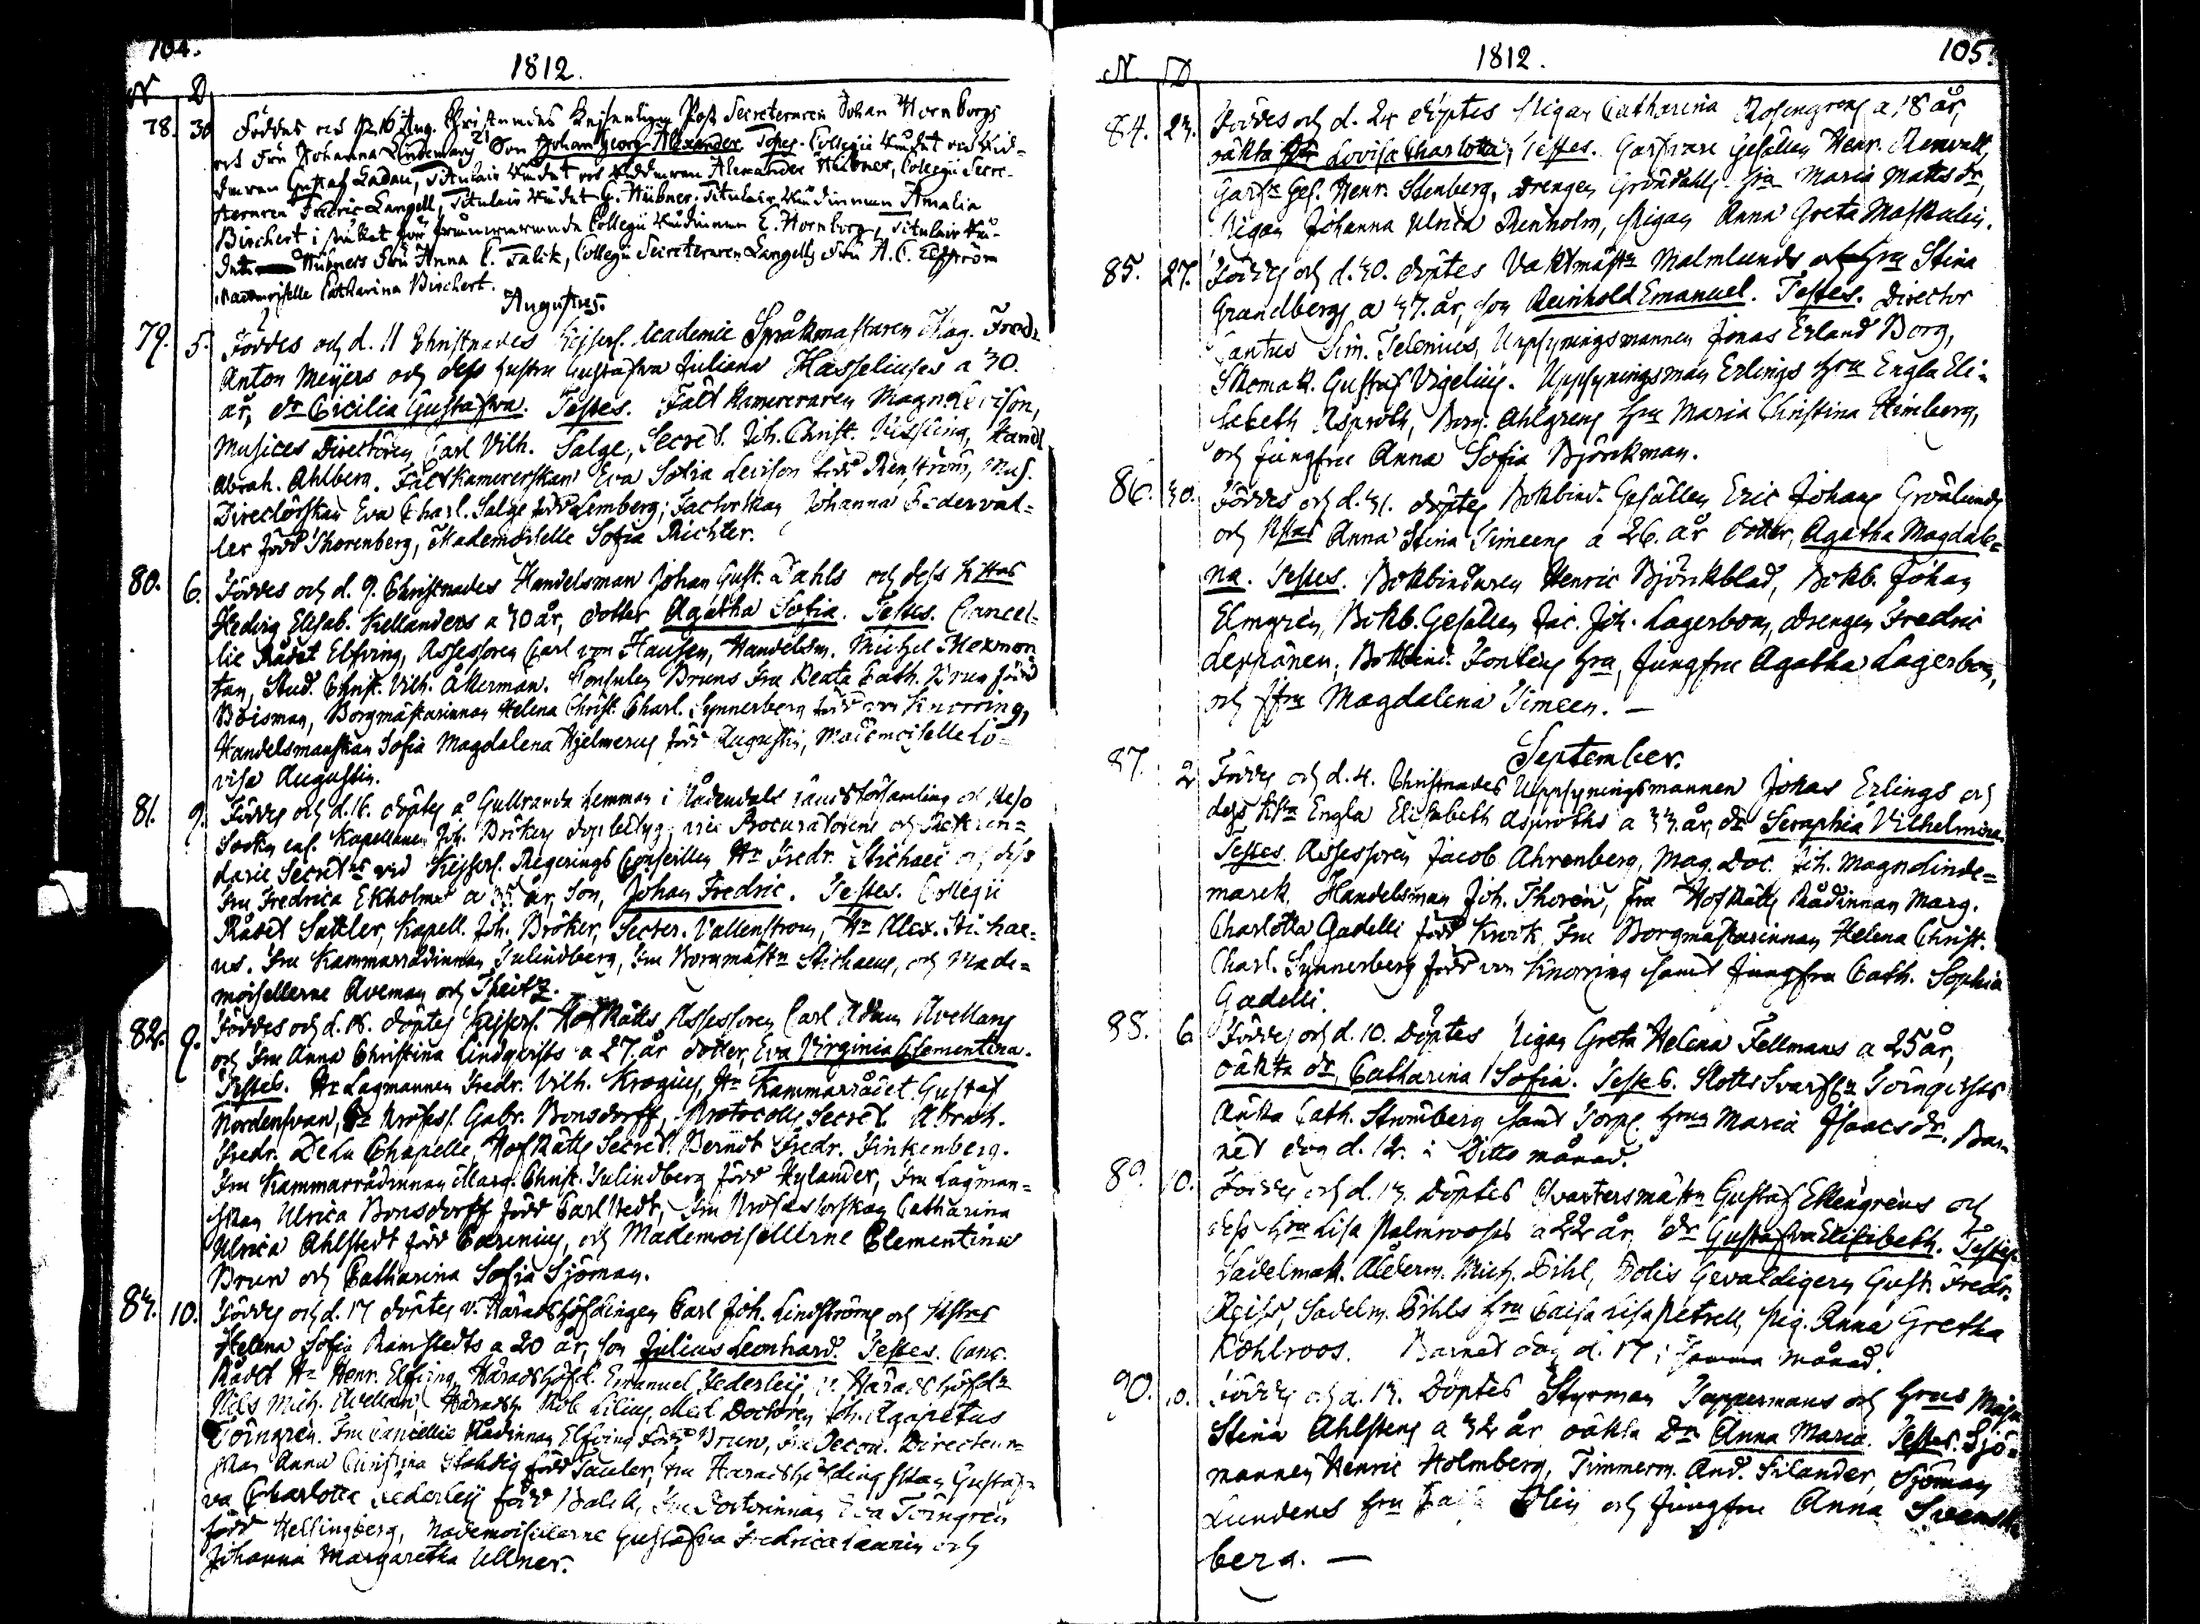 104.
1812.
N D
78. 30 Föddes och d. 16 Aug. Christnades Kejserlige Post Secreteraren Johan Hornborgs
och Fru Johanna Lindeman Son Johan Georg Alexander Testes. Collegii Rådet
Gustaf Ladau, Titulair Rådet och Alexander Hübner, Collegii Secre-
teraren Fredric Langell, Titulair Rådet G. Hübner, Titulair Rådinnan Amalia
Birchert i stället för Collegii Rådinnan E. Hornborg, Titulair Rå-
dets Hübners Fru Anna C. Falck, Collegii Secreteraren Langells Fru A. C. Elfström
Mademoiselle Catharina Birchert.
Augustus.
79. 5. Föddes och d. 11 Christnades Kejserl. Academie Språkmästaren Mag. Fredr.
Anton Meijers och dess hustru Gustafva Juliana Hasseliuses a 30.
år, dr Cicilia Gustafva. Testes. Fält Kamereraren Magn. Levison,
Musices Directören Carl Vilh. Salge, Secret. Joh. Christ. Handl
Abrah. Ahlberg. Fält Kamererskan Eva Sofia Levison född Renström, Mus.
Directörskan Eva Charl. Salge född Lemberg; Factorskan Johanna Cederval-
ler född Thorenberg, Mademoiselle Sofia Richter.
80. 6. Föddes och d. 9. Christnades Handelsman Johan Gust. Dahls och dess
Hedvig Elisab. Kellanders a 30 år, dotter Agatha Sofia. Testes. Cancel-
lie Rådet Elfving, Assessoren Carl von Hausen, Handelsm. Michel Mexmon
tan, Stud. Christ. Vilh. Åkerman. Consulen Bruns Fru Beata Cath. Brun född
Boisman, Borgmästarinnan Helena Christ. Charl. Synnerberg född von Knorring,
Handelsmanskan Sofia Magdalena Hjelmerus född Augustin, Mademoiselle Lo-
visa Augustin.
81. 9. Föddes och d. 16. döptes å Gullranda Hemman i Nådendals Landsförsamling
Kapellanen Joh. Brökers Procuratorens och
darie Secret vid Kejserl. Regerings Conseillen Hr Fredr. Stichaei och dess
Fru Fredrica Ekholms a 35 år, Son, Johan Fredric. Testes. Collegii
Rådet Sattler, Kapell. Joh. Bröker, Secter. Vallenstrom, Hr Alex. Stichae-
us. Fru Kammarrådinnan Julindberg, Fru Borgmäst Stichaeus, och Made-
moisellerne Aveman och Theitz.
82. 9. Föddes och d. 18. döptes Kejserl. Hof Rätts Assessoren Carl Adam Avellans
och Fru Anna Christina Lindqvists a 27. år dotter, Eva Virginia Clementina.
Testes. Hr Lagmannen Fredr. Vilh. Krogius, Hr Kammarrådet Gustaf
Nordensvan, Hr Profess. Gabr. Bonsdorff, Protocolls Secret. Abrah.
Fredr. De la Chapelle, Hof Rätts Secret. Berndt Fredr. Finkenberg.
Fru Kammarrådinnan Marg. Christ. Julindberg född Hylander, Fru Lagman-
skan Ulrica Bonsdorff född Carlstedt, Fru Professorskan Catharina
Ulrica Ahlstedt född Carenius, och Mademoisellerne Clementina
Brun och Catharina Sofia Sjöman.
83. 10. Föddes och d. 17 döptes v. Häradshöfdingen Carl Joh. Lindströms och
Helena Sofia Ramstedts a 20 år, Son Julius Leonhard. Testes. Canc.
Rådet Hr Henr. Elfving, Häradshöfd. Emanuel Federleij, v. Häradshöfd
Nils Mich. Avellan, Häradsh. Rob. Lilius, Med. Doctoren Joh. Agapetus
Törngren. Fru Cancellie Rådinnan Elfving född Brun, Fru Oecon. Directeur-
skan Anna Christina Stahdig född Fru Häradshöfdingskan Gustaf-
va Charlotta Federleij född Balck, Fru Doctorinnan Eva Törngren
född Hellingberg, Mademoisellerne Gustafva Fredrica Laurin och
Johanna Margaretha Ullner.
1812.
105.
N D
84. 23. Föddes och d. 24 döptes Pigan Catharina Rosengrens a 18 år,
oäkta Lovisa Charlotta, Testes. Garfvare Gesällen Henr. Renvall,
Garf. Ges. Henr. Stenberg, Drengen Gröndahls Maria Matts dr,
Pigan Johanna Ulrica Renholm, Pigan Anna Greta Maskulin.
85. 27. Föddes och d. 30. döptes Vaktmäst Malmlunds och Hru Stina
Grandbergs a 37. år, Son Reinhold Emanuel. Testes. Director
Cantus Sim. Telenius, Uppsyningsmannen Jonas Erland Borg,
Skomak. Gustaf Vigelius. Uppsyningsman Erlings Hru Engla Eli-
sabeth Asproth, Borg. Ahlgrens Hru Maria Christina Himberg,
och Jungfru Anna Sofia Björkman.
86. 30. Föddes och d. 31. döptes Bokbind. Gesällen Eric Johan Grönlunds
och Anna Stina Simeens a 26. år dotter, Agatha Magdale-
na. Testes. Bokbindaren Henric Björkblad, Bokb. Johan
Elmgren, Bokb. Gesällen Jac. Joh. Lagerbom, drengen Fredric
Leppänen; Bokbind. Hru, Jungfru Agatha Lagerbom,
och Jfru Magdalena Simeen. —
September.
87. 2 Föddes och d. 4. Christnades Uppsyningsmannen Johas Erlings och
dess Engla Elisabeth Asproths a 33. år, dr Seraphia Vilhelmina
Testes. Assessoren Jacob Ahrenberg, Mag. Doc. Joh. Magn. Linde-
marck, Handelsman Joh. Thorén, Fru Hof Rätts Rådinnan Marg.
Charlotta Gadelli född Krook, Fru Borgmästarinnan Helena Christ.
Charl. Synnerberg född von Knorring samt Jungfru Cath. Sophia
Gadelli.
88. 6 Föddes och d. 10. Döptes Pigan Greta Helena Fellmans a 25 år,
oäkta dr, Catharina Sofia. Testes. Slotts Svarf Törnqvists
Änka Cath. Strömberg samt Torp. Maria Isaacs dr, Bar-
net dog d. 12. i Ditto månad.
89. 10. Föddes och d. 13. Döptes Qvartersmäst Gustaf Ekengrens och
dess Hru Lisa Palmrooses a 22 år, dr Gustafva Elisabeth. Testes.
Sadelmak. Ålderm. Mich. Bihl, Polis Gevaldigern Gust. Fredr.
Sadelm. Bihls Hru Caisa Lisa Petrell, Pig. Anna Gretha
Kohlroos. Barnet dog d. 17 i samma månad.
90. 10. Föddes och d. 13. Döptes Styrman Tappermans och Hrus Maja
Stina Ahlstens a 32 år oäkta Dr Anna Maria. Testes. Sjö-
mannen Henric Holmberg, Timmerm. And. Silander, Sjöman
Lundens Hru och Jungfru Anna Svensk
berg. —